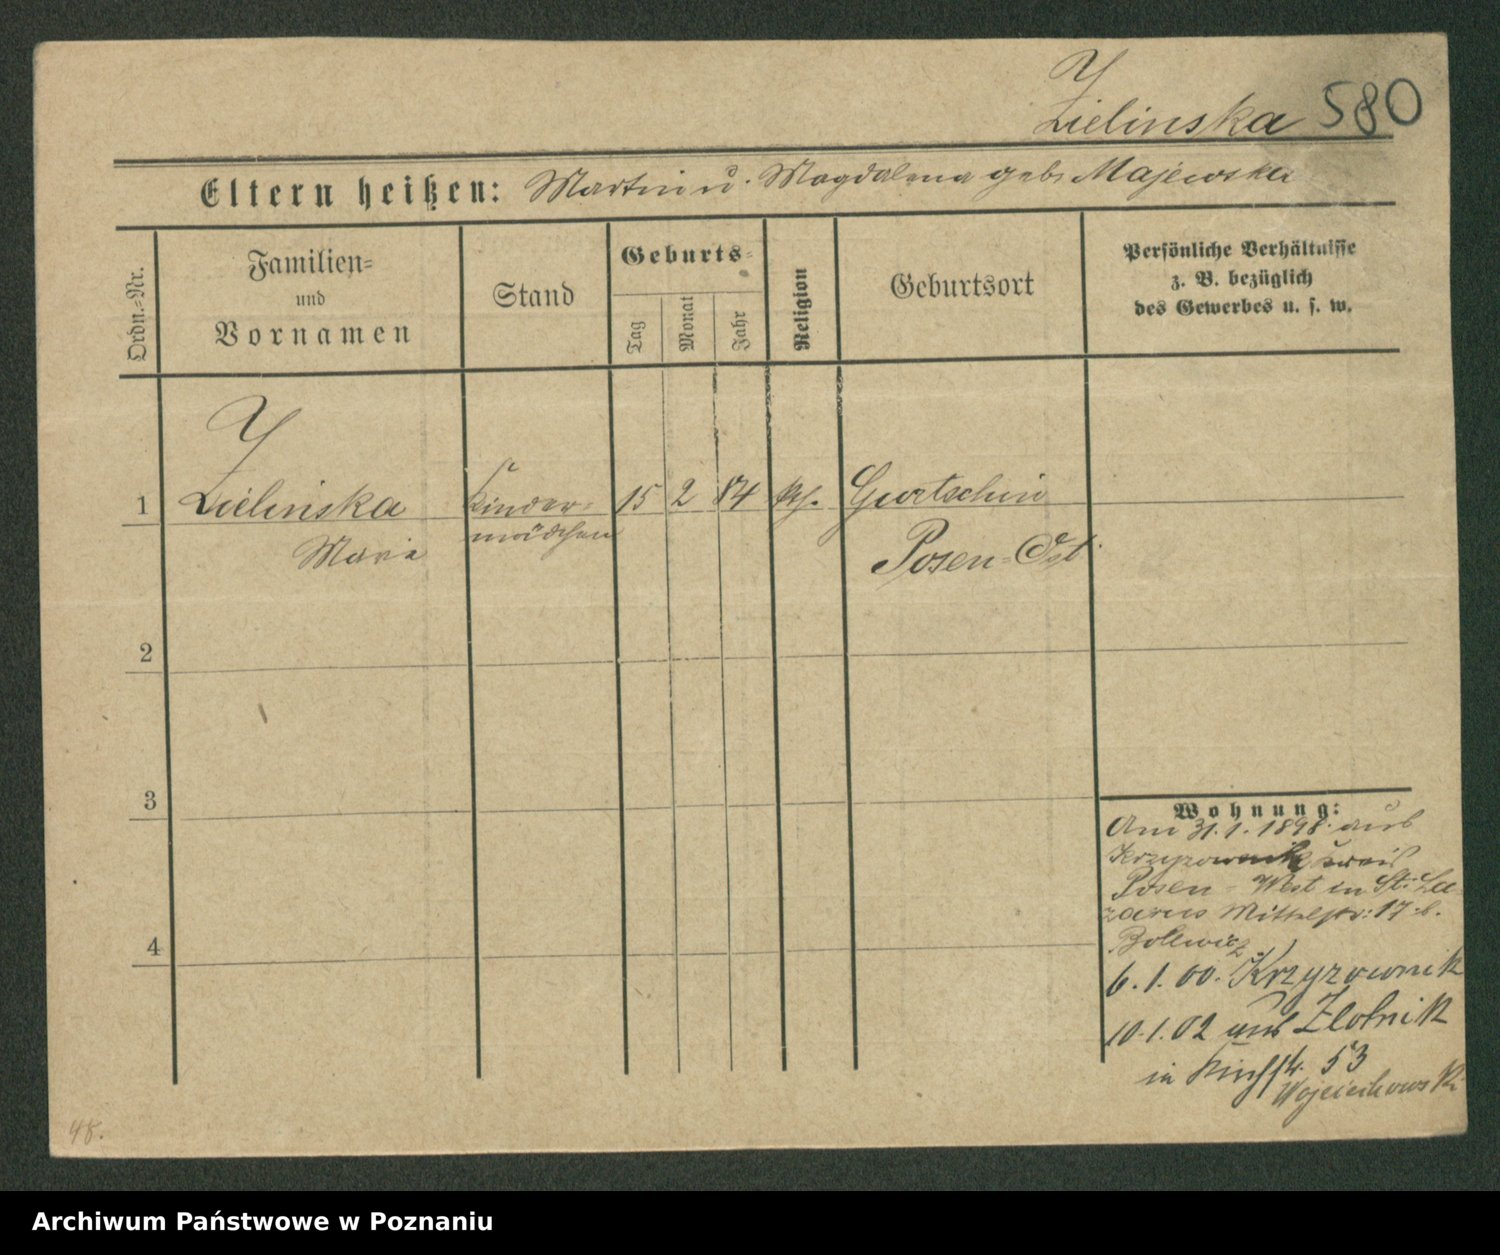 Y
Zielinska 580
Eltern heißen: Martin u. Magdalena geb. Majewska
Ordn.=Nr.
Familien=
und
Vornamen
Stand
Geburts=
Tag
Monat
Jahr
Religion
Geburtsort
Persönliche Verhältnisse
z. B. bezüglich
des Gewerbes u. s. w.
Y
1 Zielinska Kinder= 15 2 84 kth. Gurtschin
Maria mädchen Posen=Ost
2
3
4
Wohnung:
Am 31.1.1898 aus
Krzyzownik Kreis
Posen=West in St. La
zarus Mittelstr: 17 b.
6.1.00. Krzyzownik
10.1.02 aus Zlotnik
in 53
Wojciechowski
48.
Archiwum Państwowe w Poznaniu